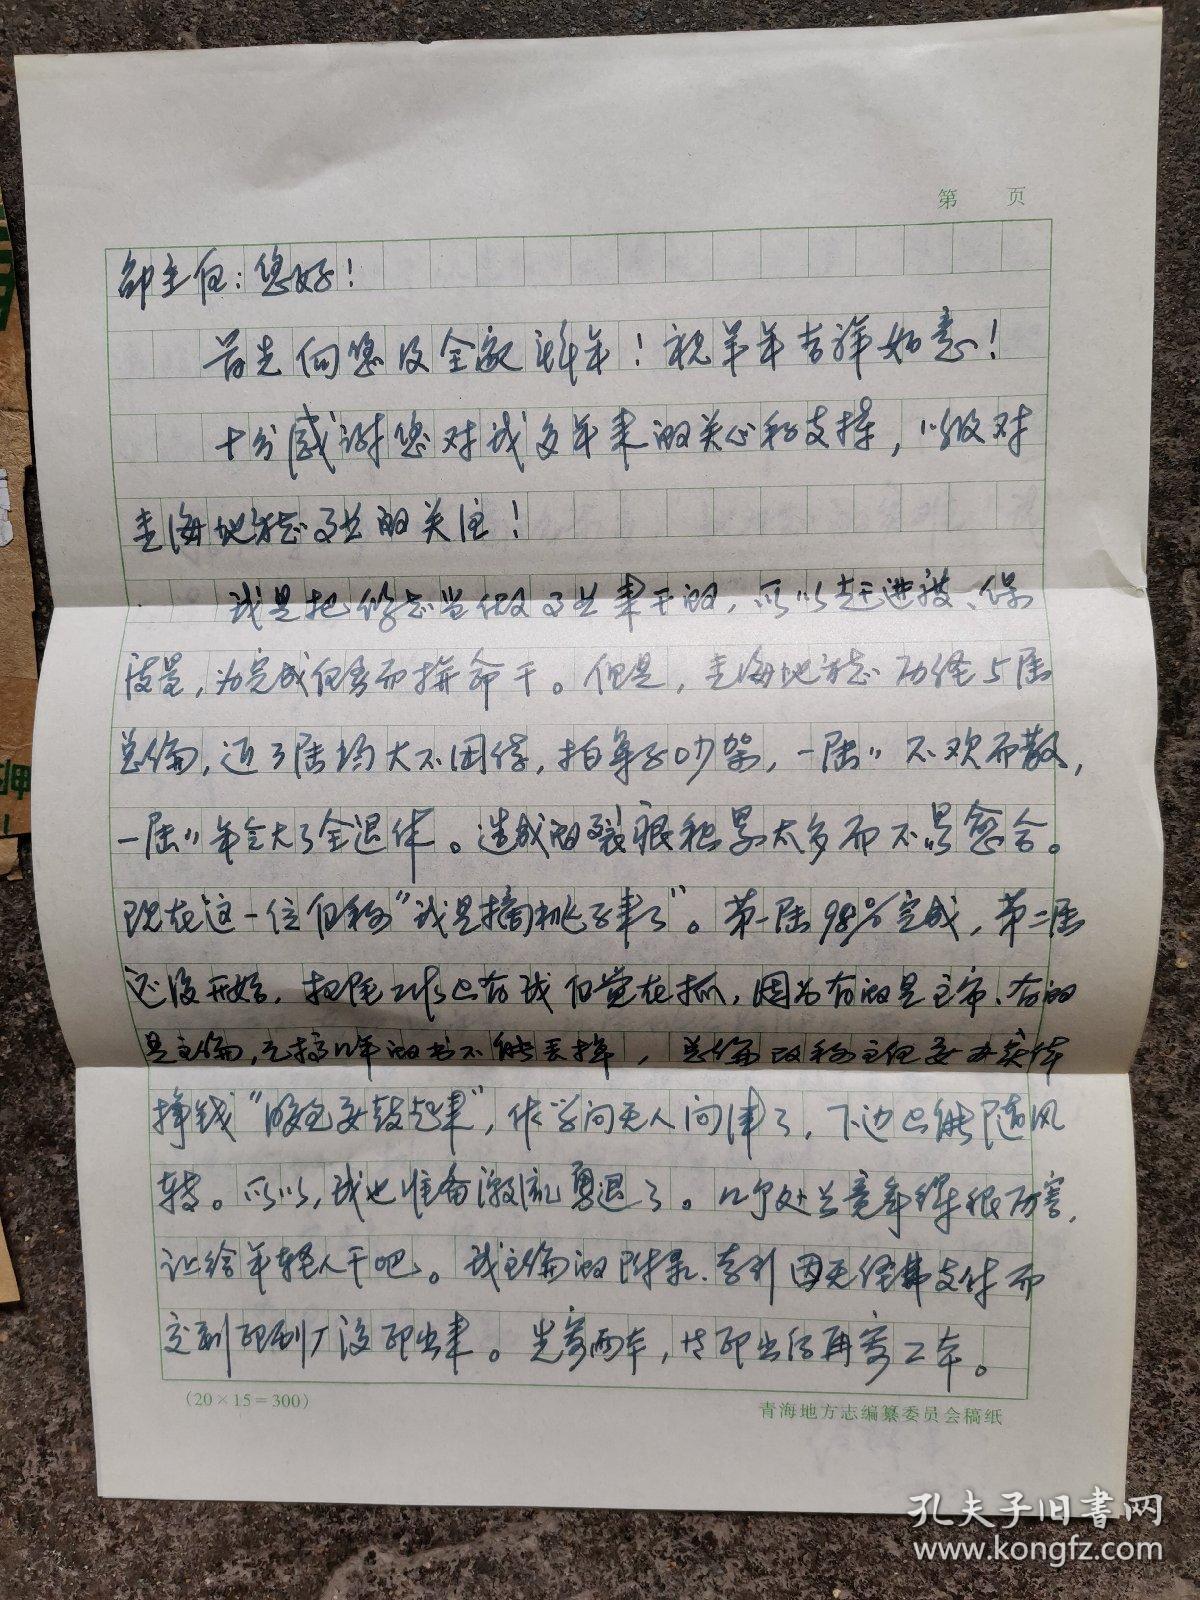 第　页
邵主任：您好！
首先向您及全家拜年！祝羊年吉祥如意！
十分感谢您对我多年来的关心和支持，以及对
青海地方志事业的关注！
我是把修志当做事业来干的，所以赶进度、保
质量，为完成任务而拼命干。但是，青海地方志历经5届
总编，近3届均大不团结，拍桌子吵架，一届届不欢而散，
一届届年令大了全退休。造成的裂痕积累太多而不易愈合。
现在这一位但称“我是摘桃子来了”。第一届98%完成，第二届
还没开始，扫尾工作只有我但觉在抓，因为有的是主审、有的
是主编，已搞几年的书不能丢掉，总编改称主任要办实体
挣钱“腰包要鼓起来”，做学问无人问津了，下边只能随风
转。所以，我也准备激流勇退了。几个处长竞争得很厉害，
让给年轻人干吧。我主编的附录、索引因无经费支付而
交到印刷厂没印出来。先寄两本，待印出后再寄二本。
(20×15=300)
青海地方志编纂委员会稿纸
孔夫子旧书网
www.kongfz.com